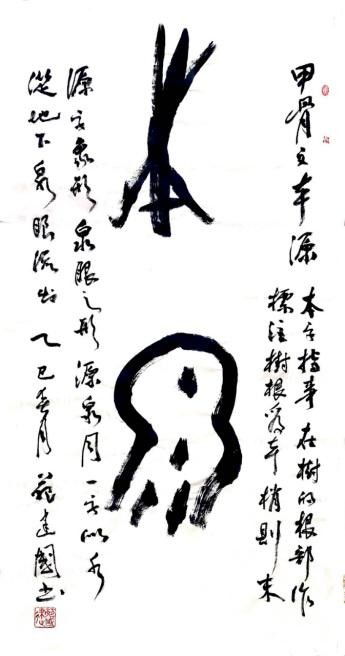 甲骨文夲源
本字指事 在樹的根部作
標注 樹根為夲 梢則末
本
泉
源字象形 泉眼之形 源泉同一字 似水
從地下泉眼流出 乙巳春月 建國书